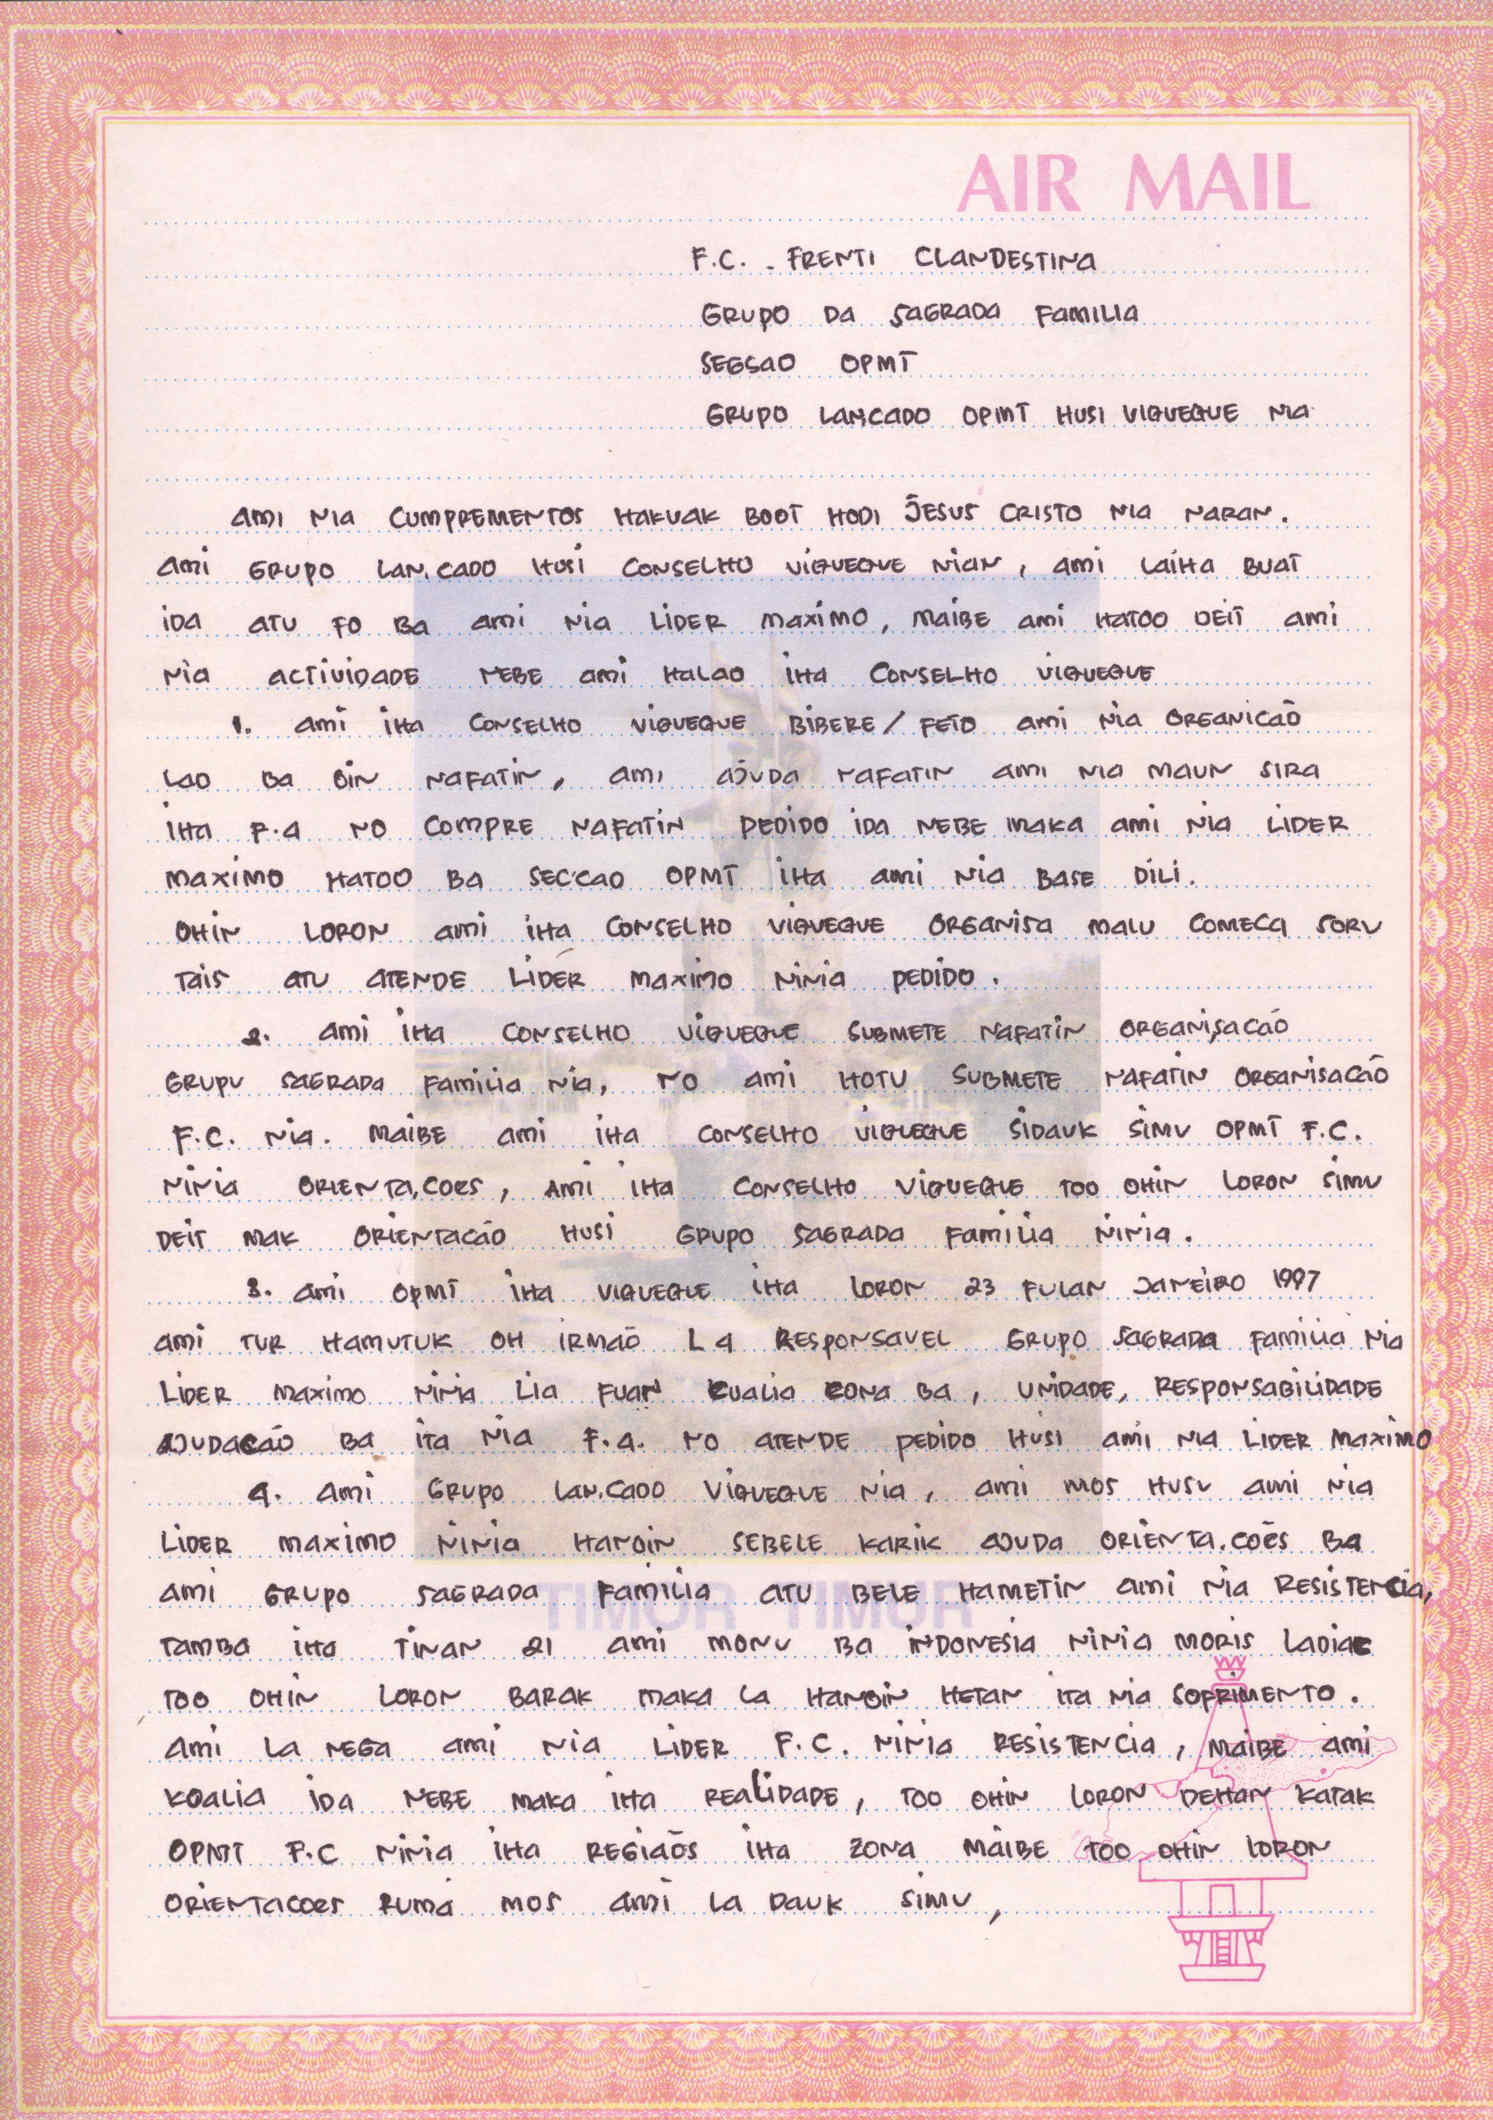 AIR MAIL
F.C. - FRENTI CLANDESTINA
GRUPO DA SAGRADA FAMILIA
SEGSAO OPMT
GRUPO LAN,CADO OPMT HUSI VIQUEQUE NIA
AMI NIA CUMPREMENTOS HAKUAK BOOT HODI JESUS CRISTO NIA NARAN.
AMI GRUPO LAN,CADO HUSI CONSELHO VIQUEQUE NIAN, AMI LAIHA BUAT
IDA ATU FO BA AMI NIA LIDER MAXIMO, MAIBE AMI HATOO DEIT AMI
NIA ACTIVIDADE NEBE AMI HALAO IHA CONSELHO VIQUEQUE
1. AMI IHA CONSELHO VIQUEQUE BIBERE/FETO AMI NIA ORGANICAÕ
LAO BA OIN NAFATIN, AMI AJUDA NAFATIN AMI NIA MAUN SIRA
IHA F.A NO COMPRE NAFATIN PEDIDO IDA NEBE MAKA AMI NIA LIDER
MAXIMO HATOO BA SEC'CAO OPMT IHA AMI NIA BASE DILI.
OHIN LORON AMI IHA CONSELHO VIQUEQUE ORGANISA MALU COMECA SORU
TAIS ATU ATENDE LIDER MAXIMO NINIA PEDIDO.
2. AMI IHA CONSELHO VIQUEQUE SUBMETE NAFATIN ORGANISACÃO
GRUPU SAGRADA FAMILIA NIA, NO AMI HOTU SUBMETE NAFATIN ORGANISACÃO
F.C. NIA. MAIBE AMI IHA CONSELHO VIQUEQUE SIDAUK SIMU OPMT F.C.
NINIA ORIENTA,COES, AMI IHA CONSELHO VIQUEQUE TOO OHIN LORON SIMU
DEIT MAK ORIENTACÃO HUSI GRUPO SAGRADA FAMILIA NINIA.
3. AMI OPMT IHA VIQUEQUE IHA LORON 23 FULAN JANEIRO 1997
AMI TUR HAMUTUK OH IRMAÕ L 4 RESPONSAVEL GRUPO SAGRADA FAMILIA NIA
LIDER MAXIMO NINIA LIA FUAN KUALIA CONA BA, UNIDADE, RESPONSABILIDADE
AJUDACÃO BA ITA NIA F.A. NO ATENDE PEDIDO HUSI AMI NIA LIDER MAXIMO
4. AMI GRUPO LAN,CADO VIQUEQUE NIA, AMI MOS HUSU AMI NIA
LIDER MAXIMO NINIA HANOIN SEBELE KARIK AJUDA ORIENTA,COẼS BA
AMI GRUPO SAGRADA FAMILIA ATU BELE HAMETIN AMI NIA RESISTENCIA,
TAMBA IHA TINAN 21 AMI MONU BA INDONESIA NINIA MORIS LADIAC
TOO OHIN LORON BARAK MAKA LA HANOIN HETAN ITA NIA SOFRIMENTO.
AMI LA NEGA AMI NIA LIDER F.C. NINIA RESISTENCIA, MAIBE AMI
KOALIA IDA NEBE MAKA IHA REALIDADE, TOO OHIN LORON DEHAN KATAK
OPMT F.C NINIA IHA REGIAÕS IHA ZONA MAIBE TOO OHIN LORON
ORIENTACOES RUMA MOS AMI LA DAUK SIMU,
TIMOR TIMUR